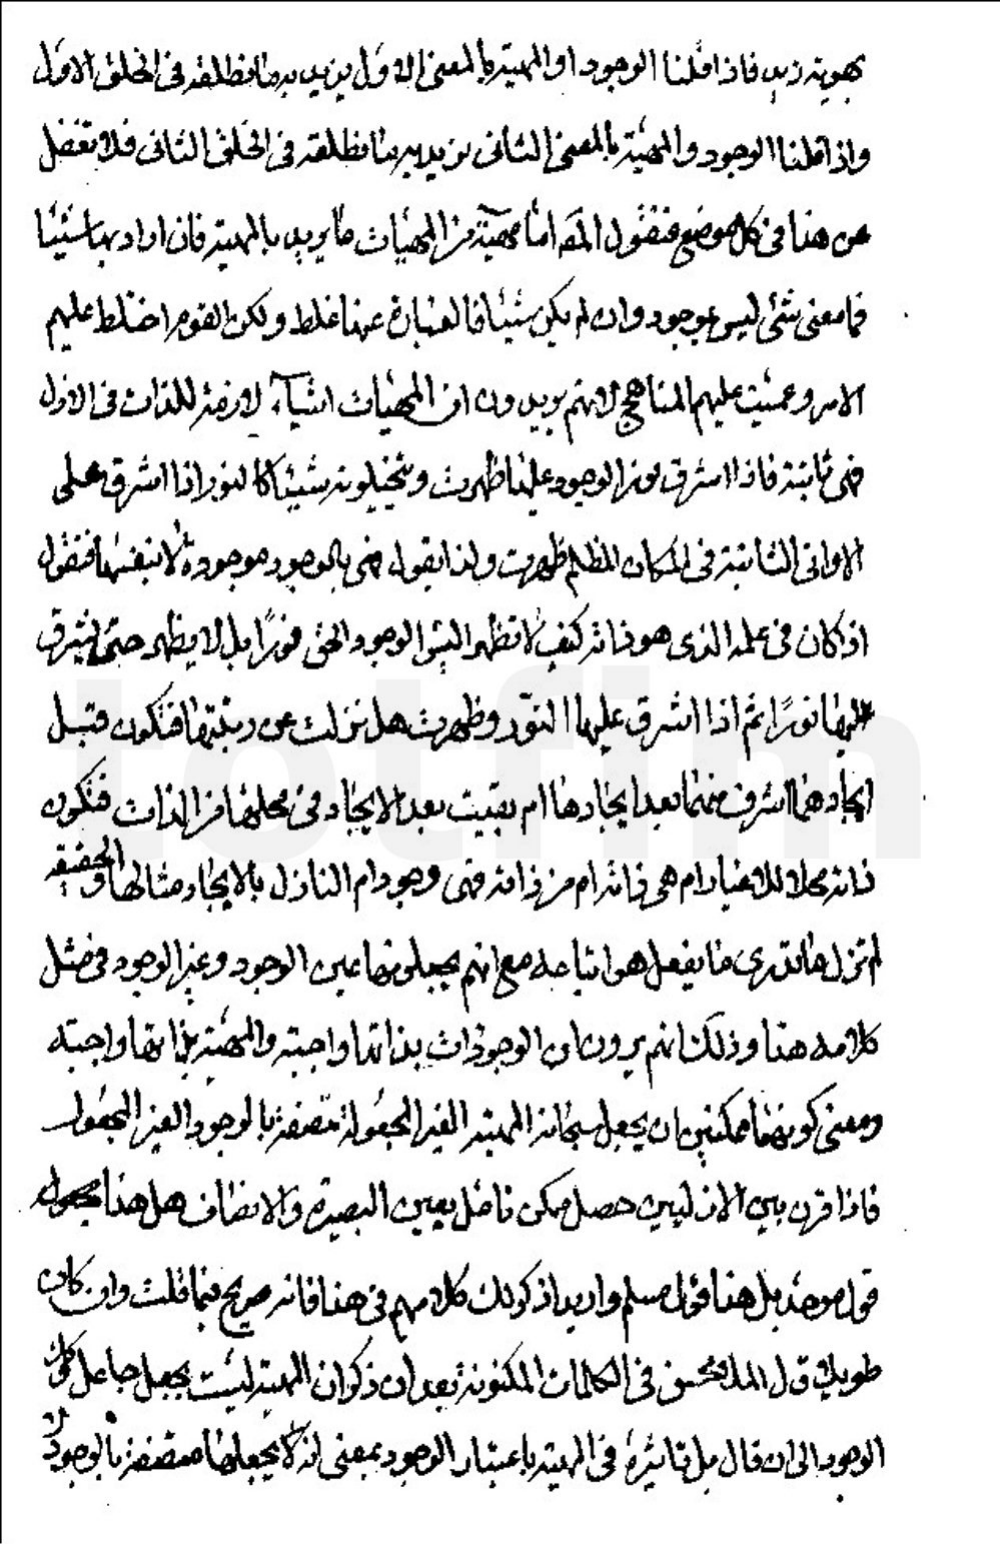 بهوية زيد فاذا قلنا الوجود او المهية بالمعنى الاول نريد به ما نطلقه فى الخلق الاول
واذا قلنا الوجود والمهية بالمعنى الثانى نريد به ما نطلقه فى الخلق الثانى فلا تغفل
عن هذا فى كل موضع فنقول المص اما مهية من المهيات ما يريد بالمهية فان اراد بها شيئا
فما معنى شئ ليس بموجود وان لم يكن شيئا فالعبارة عنها غلط ولكن القوم اختلط عليهم
الامر وعميت عليهم المناهج لانهم يريدون ان المهيات اشياء لازمة للذات فى الازل
فهى ثابتة فاذا اشرق نور الوجود عليها ظهرت ويتخيلونه شيئا كالنور اذا اشرق على
الاوانى الثابتة فى المكان المظلم ظهرت ولذا يقول هى بالوجود موجودة لا بنفسها فنقول
اذا كان فى علمه الذى هو ذاته كيف لا تظهر اليس الوجود الحق نورا بل لا يظهر حتى يشرق
عليها نورا ثم اذا اشرق عليها النور وظهرت هل نزلت عن رتبتها فتكون قبل
ايجادها اشرف منها بعد ايجادها ام بقيت بعد الايجاد فى محلها من الذات فتكون
ذاته محلا للاغيار ام هى ذاته ام من ذاته فهى وجود ام النازل بالايجاد مثالها والحقيقة
لم تزل ما تدرى ما يفعل هو اتباعه مع انهم يجعلونها عين الوجود وغير الوجود فى مثل
كلامه هنا وذلك انهم يرون ان الوجود ذات بذاتها واجبة والمهية بذاتها واجبة
ومعنى كونهما ممكنين ان يجعل سبحانه المهية الغير المجعولة متصفة بالوجود الغير المجعول
فاذا قرن بين الازليين حصل ممكن تامل بعين البصيرة والانصاف هل هذا
قول موحد بل هذا قول مسلم واريد اذكر لك كلامهم فى هذا فانه صريح فيما قلت وان كان
طويلا قول الملا محسن فى الكلمات المكنونة بعد ان ذكر ان المهية ليست بجعل جاعل
الوجود الى ان قال بل تاثيره فى المهية باعتبار الوجود بمعنى انه يجعلها متصفة بالوجود
totfim